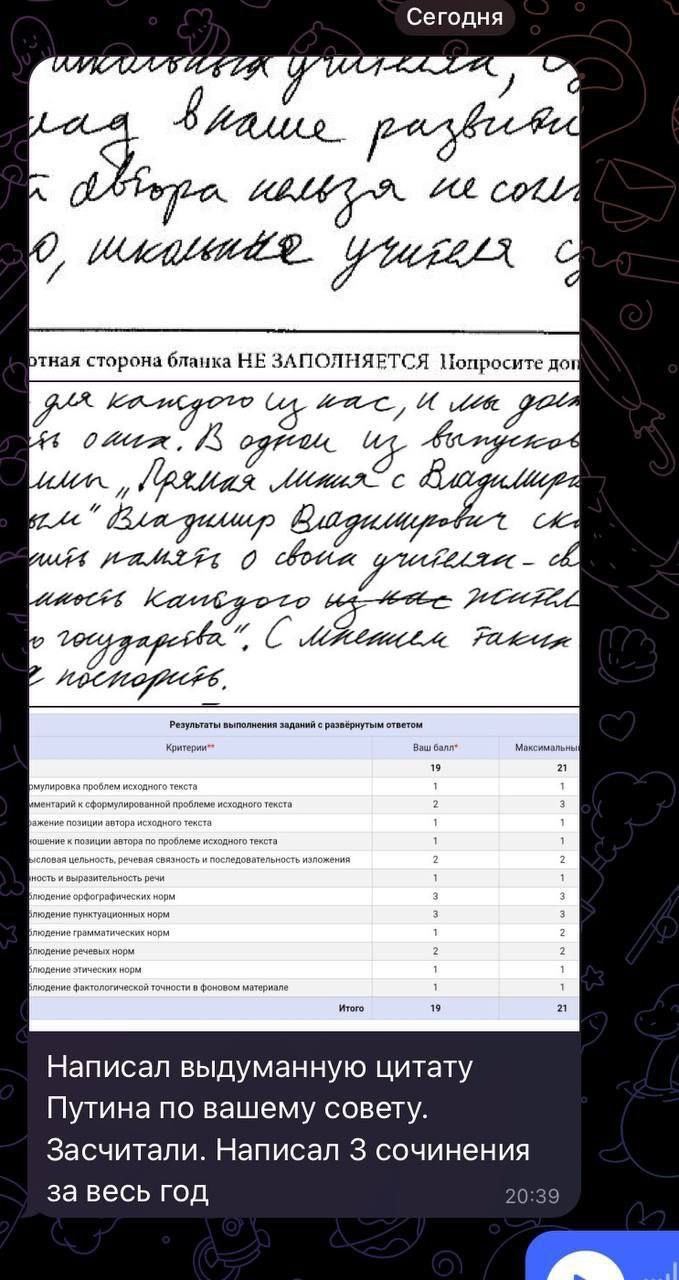 Сегодня
школьных учителя,
лад в наше развити
й автора нельзя не согл
о, школьные учителя с
отная сторона бланка НЕ ЗАПОЛНЯЕТСЯ Попросите доп
для каждого из нас, и мы дол
ть о них. В одном из выпусков
ммы „Прямая линия с Владимиро
ым" Владимир Владимирович ск
ить память о своих учителях - св
нность каждого из нас жител
о государства". С мнением таким
поспорить.
Результаты выполнения заданий с развёрнутым ответом
Критерии** Ваш балл* Максимальны
19 21
рмулировка проблем исходного текста 1 1
мментарий к сформулированной проблеме исходного текста 2 3
ражение позиции автора исходного текста 1 1
ношение к позиции автора по проблеме исходного текста 1 1
ысловая цельность, речевая связность и последовательность изложения 2 2
чность и выразительность речи 1 1
блюдение орфографических норм 3 3
блюдение пунктуационных норм 3 3
блюдение грамматических норм 1 2
блюдение речевых норм 2 2
блюдение этических норм 1 1
блюдение фактологической точности в фоновом материале 1 1
Итого 19 21
Написал выдуманную цитату
Путина по вашему совету.
Засчитали. Написал 3 сочинения
за весь год
20:39